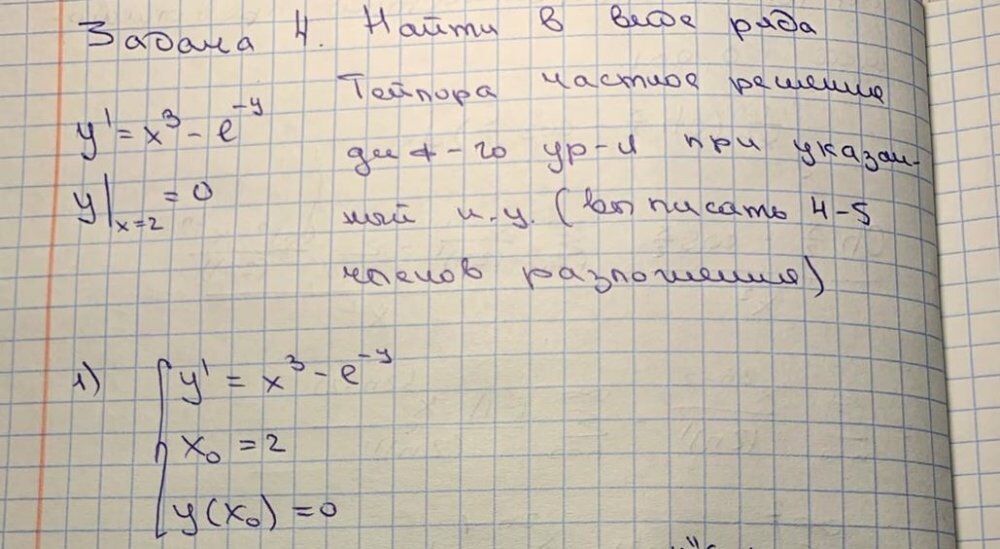 Задача 4. Найти в виде ряда
Тейлора частное решение
y' = x³ - e^{-y}
диф-го ур-я при указан-
y|_{x=2} = 0
ной н.у. (выписать 4-5
членов разложения)
1) { y' = x³ - e^{-y}
x₀ = 2
y(x₀) = 0